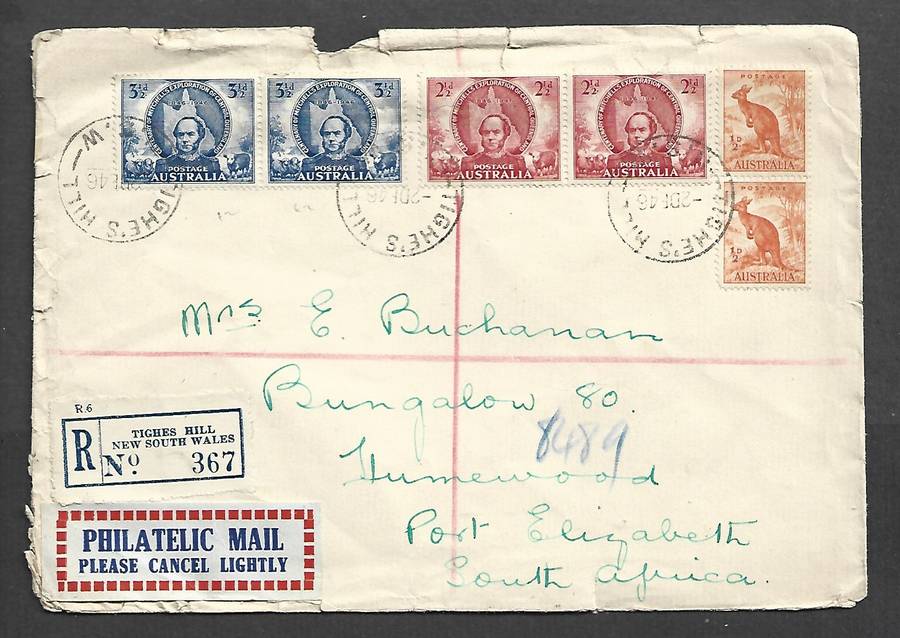 3½d 3½d
CENTENARY OF MITCHELL'S EXPLORATION OF CENTRAL QUEENSLAND
1846-1946
POSTAGE
AUSTRALIA
3½d 3½d
CENTENARY OF MITCHELL'S EXPLORATION OF CENTRAL QUEENSLAND
1846-1946
POSTAGE
AUSTRALIA
2½d 2½d
CENTENARY OF MITCHELL'S EXPLORATION OF CENTRAL QUEENSLAND
1846-1946
POSTAGE
AUSTRALIA
2½d 2½d
CENTENARY OF MITCHELL'S EXPLORATION OF CENTRAL QUEENSLAND
1846-1946
POSTAGE
AUSTRALIA
POSTAGE
½D
AUSTRALIA
POSTAGE
½D
AUSTRALIA
TIGHE'S HILL
TIGHE'S HILL
-2DE46
TIGHE'S HILL
-2DE46
Mrs E. Buchanan
Bungalow 80.
8489
Humewood
Port Elizabeth
South Africa.
R.6
R
TIGHES HILL
NEW SOUTH WALES
No 367
PHILATELIC MAIL
PLEASE CANCEL LIGHTLY